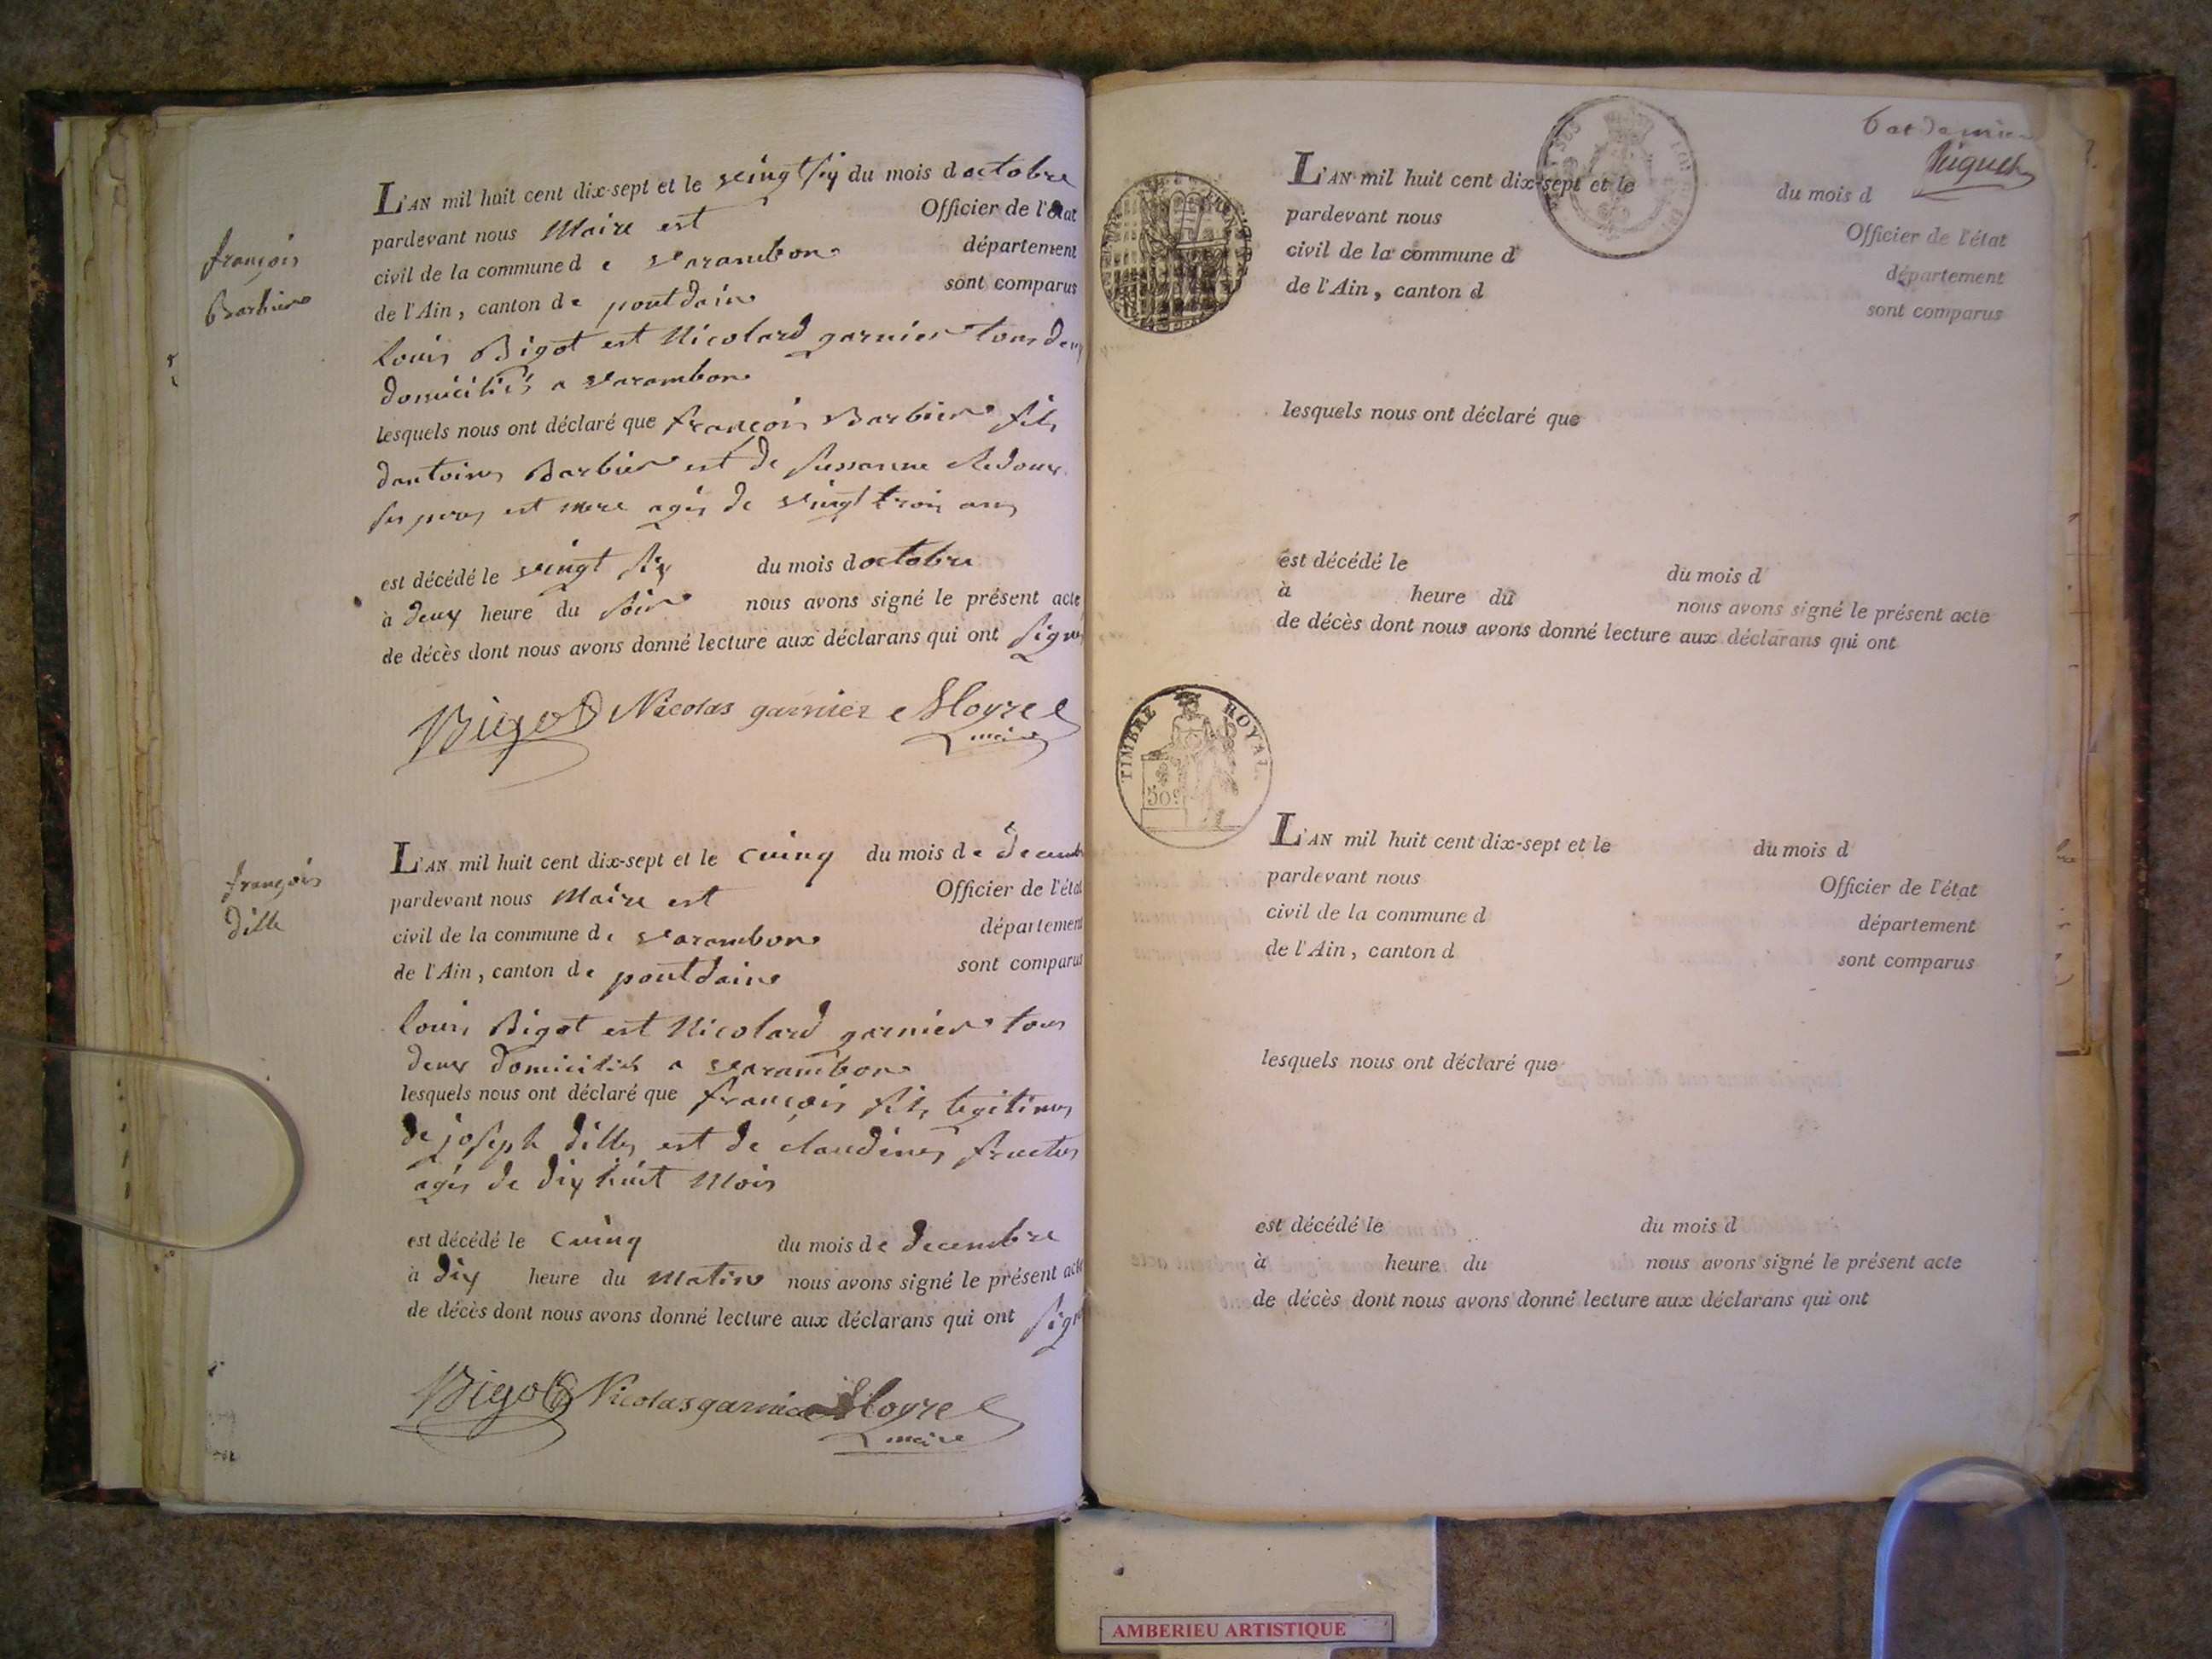 françois
Barbier
L'AN mil huit cent dix-sept et le veingt six du mois d octobre
pardevant nous Maire est Officier de l'état
civil de la commune d e varambon département
de l'Ain, canton d e pontdain sont comparus
louis Bigot est Nicolard garnier tous deux
domiciliés a varambon
lesquels nous ont déclaré que françois Barbier fils
dantoine Barbier est de sussanne
ses peres est mere agés de vingt trois ans
est décédé le veingt six du mois d octobre
à deux heure du soir nous avons signé le présent acte
de décès dont nous avons donné lecture aux déclarans qui ont signé
Bigot Nicolas garnier
maire
françois
dille
L'AN mil huit cent dix-sept et le cuinq du mois d e decembre
pardevant nous Maire est Officier de l'état
civil de la commune d e varambon département
de l'Ain, canton d e pontdain sont comparus
louis Bigot est Nicolard garnier tous
deux domiciliés a varambon
lesquels nous ont déclaré que françois fils legitimes
de joseph dilles est de claudines
agés de dix huit mois
est décédé le cuinq du mois d e decembre
à dix heure du matin nous avons signé le présent acte
de décès dont nous avons donné lecture aux déclarans qui ont signé
Bigot Nicolas garnier
maire
L'AN mil huit cent dix-sept et le du mois d
pardevant nous Officier de l'état
civil de la commune d département
de l'Ain, canton d sont comparus
lesquels nous ont déclaré que
est décédé le du mois d
à heure du nous avons signé le présent acte
de décès dont nous avons donné lecture aux déclarans qui ont
TIMBRE ROYAL
50c
L'AN mil huit cent dix-sept et le du mois d
pardevant nous Officier de l'état
civil de la commune d département
de l'Ain, canton d sont comparus
lesquels nous ont déclaré que
est décédé le du mois d
à heure du nous avons signé le présent acte
de décès dont nous avons donné lecture aux déclarans qui ont
AMBERIEU ARTISTIQUE